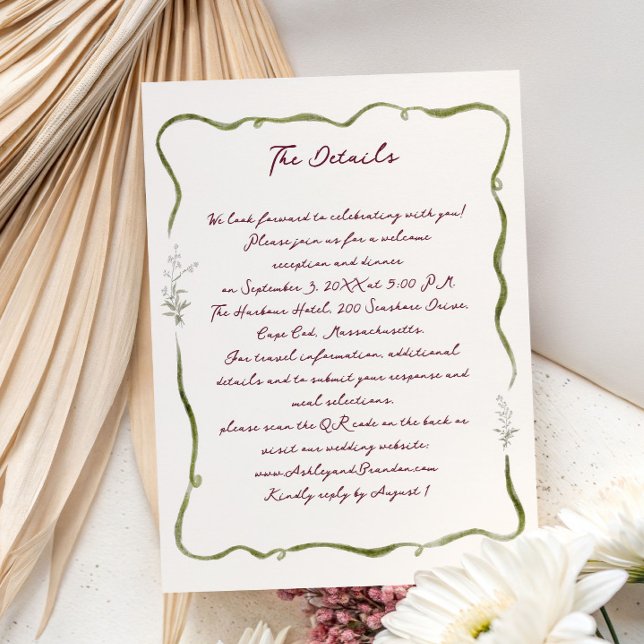 The Details
We look forward to celebrating with you!
Please join us for a welcome
reception and dinner
on September 3, 20XX at 5:00 P.M.
The Harbour Hotel, 200 Seashore Drive,
Cape Cod, Massachusetts.
For travel information, additional
details and to submit your response and
meal selections,
please scan the QR code on the back or
visit our wedding website:
www.AshleyandBrandon.com
Kindly reply by August 1